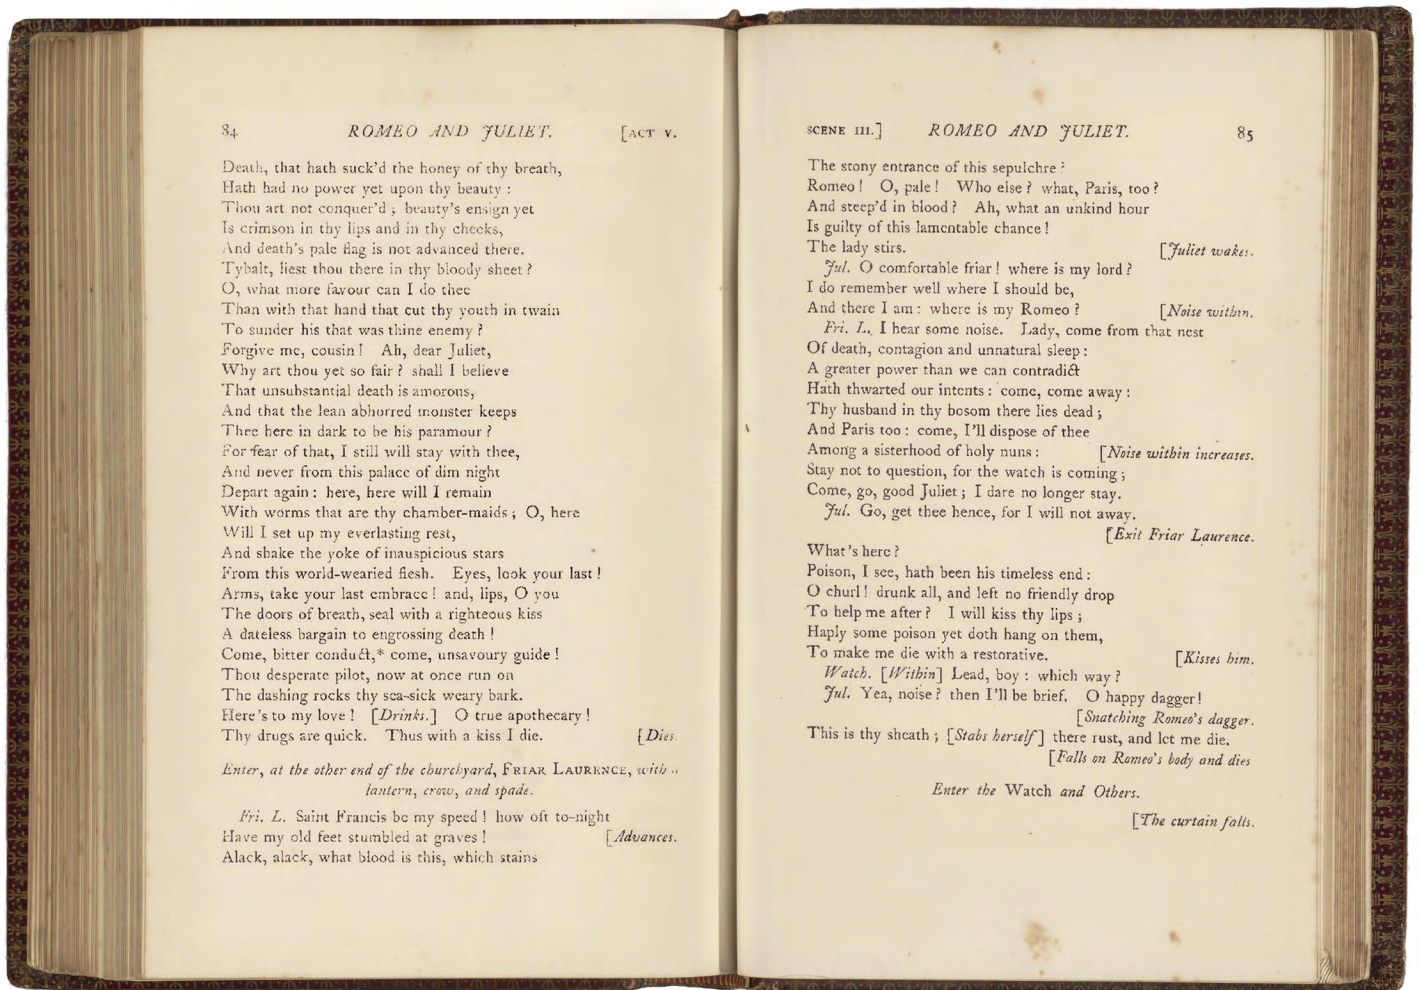 84 ROMEO AND JULIET. [ACT V.
Death, that hath suck'd the honey of thy breath,
Hath had no power yet upon thy beauty :
Thou art not conquer'd ; beauty's ensign yet
Is crimson in thy lips and in thy cheeks,
And death's pale flag is not advanced there.
Tybalt, liest thou there in thy bloody sheet ?
O, what more favour can I do thee
Than with that hand that cut thy youth in twain
To sunder his that was thine enemy ?
Forgive me, cousin ! Ah, dear Juliet,
Why art thou yet so fair ? shall I believe
That unsubstantial death is amorous,
And that the lean abhorred monster keeps
Thee here in dark to be his paramour ?
For fear of that, I still will stay with thee,
And never from this palace of dim night
Depart again : here, here will I remain
With worms that are thy chamber-maids ; O, here
Will I set up my everlasting rest,
And shake the yoke of inauspicious stars
From this world-wearied flesh. Eyes, look your last !
Arms, take your last embrace ! and, lips, O you
The doors of breath, seal with a righteous kiss
A dateless bargain to engrossing death !
Come, bitter conduct,* come, unsavoury guide !
Thou desperate pilot, now at once run on
The dashing rocks thy sea-sick weary bark.
Here's to my love ! [Drinks.] O true apothecary !
Thy drugs are quick. Thus with a kiss I die. [Dies.
Enter, at the other end of the churchyard, FRIAR LAURENCE, with a
lantern, crow, and spade.
Fri. L. Saint Francis be my speed ! how oft to-night
Have my old feet stumbled at graves ! [Advances.
Alack, alack, what blood is this, which stains
SCENE III.] ROMEO AND JULIET. 85
The stony entrance of this sepulchre ?
Romeo ! O, pale ! Who else ? what, Paris, too ?
And steep'd in blood ? Ah, what an unkind hour
Is guilty of this lamentable chance !
The lady stirs. [Juliet wakes.
Jul. O comfortable friar ! where is my lord ?
I do remember well where I should be,
And there I am : where is my Romeo ? [Noise within.
Fri. L. I hear some noise. Lady, come from that nest
Of death, contagion and unnatural sleep :
A greater power than we can contradict
Hath thwarted our intents : come, come away :
Thy husband in thy bosom there lies dead ;
And Paris too : come, I'll dispose of thee
Among a sisterhood of holy nuns : [Noise within increases.
Stay not to question, for the watch is coming ;
Come, go, good Juliet ; I dare no longer stay.
Jul. Go, get thee hence, for I will not away.
[Exit Friar Laurence.
What's here ?
Poison, I see, hath been his timeless end :
O churl ! drunk all, and left no friendly drop
To help me after ? I will kiss thy lips ;
Haply some poison yet doth hang on them,
To make me die with a restorative. [Kisses him.
Watch. [Within] Lead, boy : which way ?
Jul. Yea, noise ? then I'll be brief. O happy dagger !
[Snatching Romeo's dagger.
This is thy sheath ; [Stabs herself] there rust, and let me die.
[Falls on Romeo's body and dies
Enter the Watch and Others.
[The curtain falls.